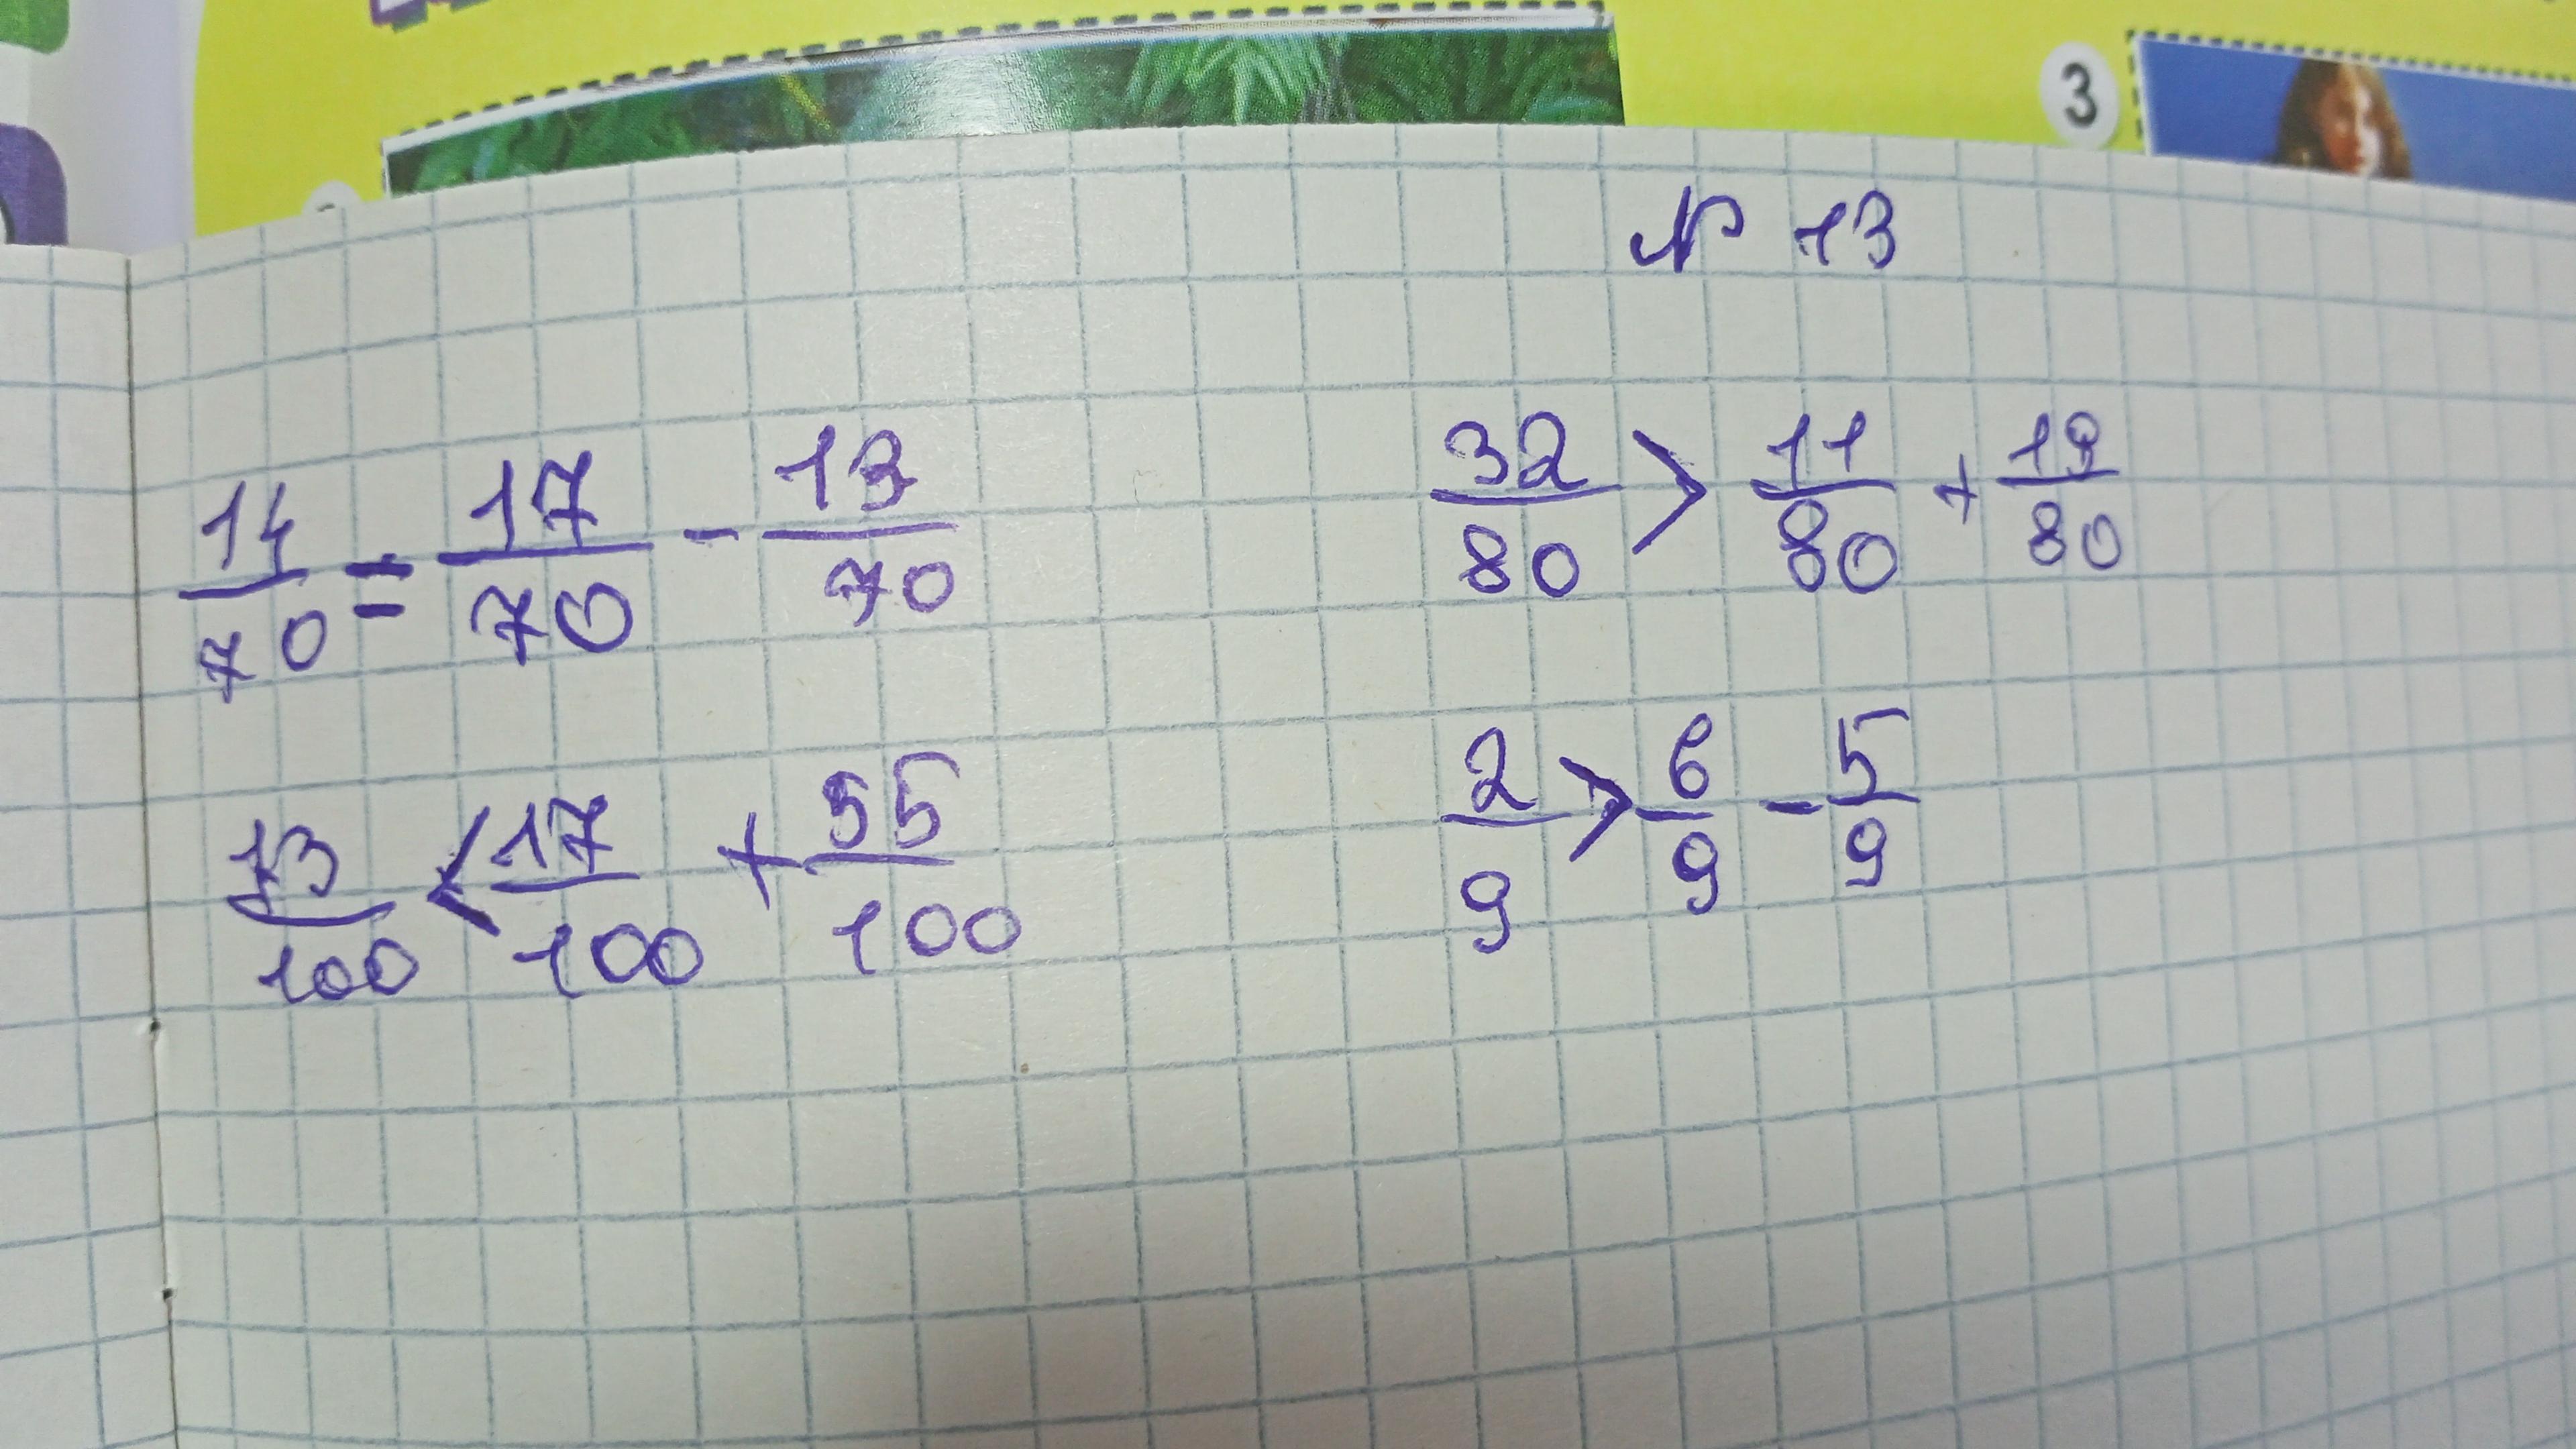 3
№ 13
14/70 = 17/70 - 13/70
32/80 > 11/80 + 19/80
13/100 < 17/100 + 55/100
2/9 > 6/9 - 5/9